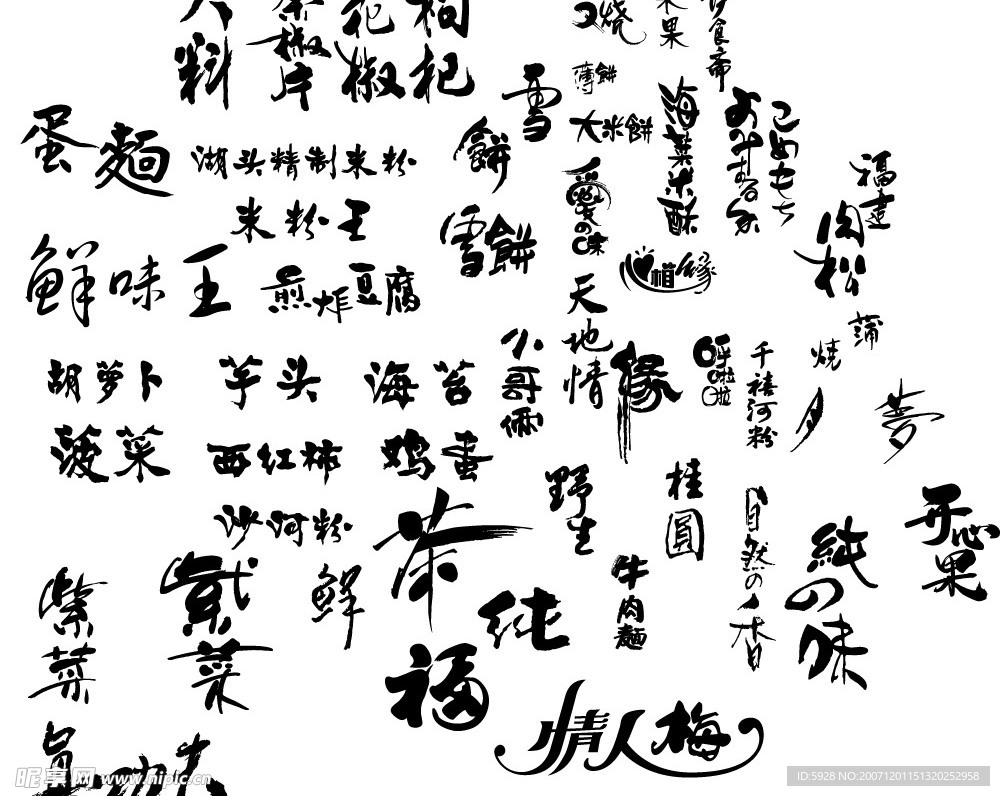 料
椒片
花椒
枸杞
烧
果
食斋
薄餅
大米餅
雪餅
海菜米酥
こめもち
福建
肉松
蛋麵
湖头精制米粉
米粉王
雪餅
愛の味
相缘
鮮味王
煎炸豆腐
天地情
缘
小哥俩
呼啦啦
千禧河粉
烧
蒲
月
夢
胡萝卜
芋头
海苔
菠菜
西红柿
鸡蛋
沙河粉
茶
野生
桂圓
自然の香
純の味
开心果
紫菜
紫菜
鮮
純
牛肉麵
福
情人梅
昵享网 www.nipic.cn
ID:5928 NO:20071201151320252958